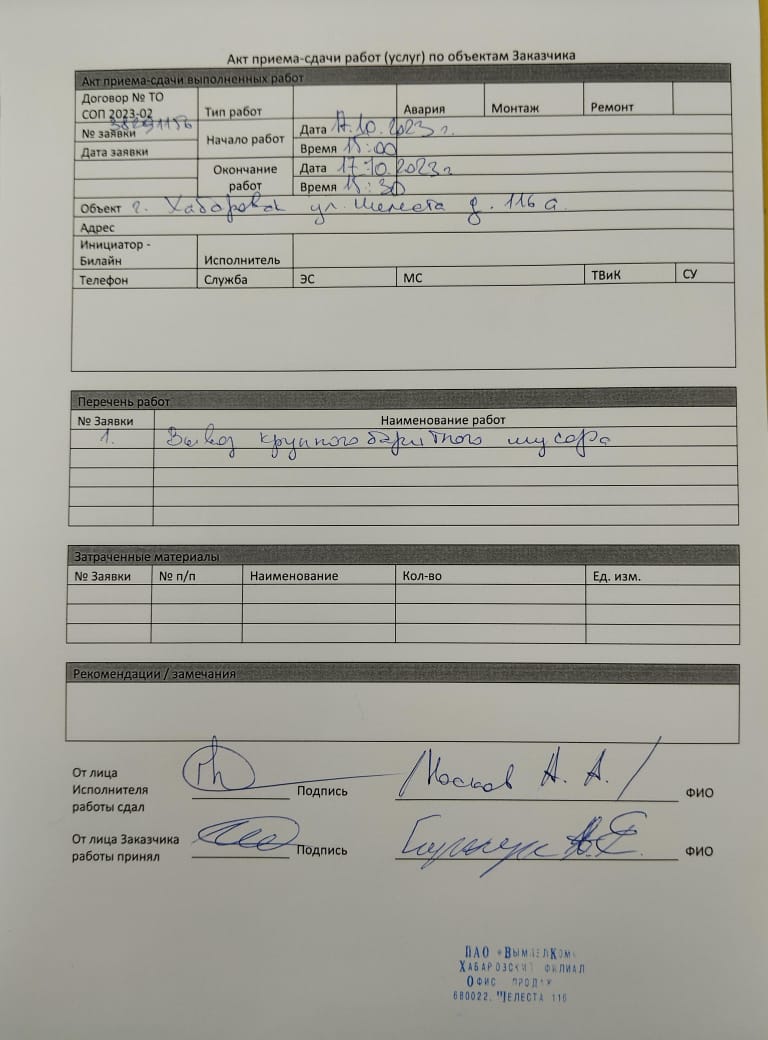 Акт приема-сдачи работ (услуг) по объектам Заказчика
Акт приема-сдачи выполненных работ
Договор № ТО
СОП 2023-02
Тип работ
Авария
Монтаж
Ремонт
№ заявки
Дата заявки
Начало работ
Дата 17.10.2023 г.
Время 15:00
Окончание
работ
Дата 17.10.2023 г
Время 15:30
Объект г. Хабаровск ул. Шелеста д. 116 а.
Адрес
Инициатор -
Билайн
Исполнитель
Телефон
Служба
ЭС
МС
ТВиК
СУ
Перечень работ
№ Заявки
Наименование работ
1.
Вывоз крупногобаритного мусора
Затраченные материалы
№ Заявки
№ п/п
Наименование
Кол-во
Ед. изм.
Рекомендации / замечания
От лица
Исполнителя
работы сдал
Подпись
Москов А. А. /
ФИО
От лица Заказчика
работы принял
Подпись
ФИО
ПАО «ВымпелКом»
Хабаровский филиал
Офис продаж
680022, Шелеста 116